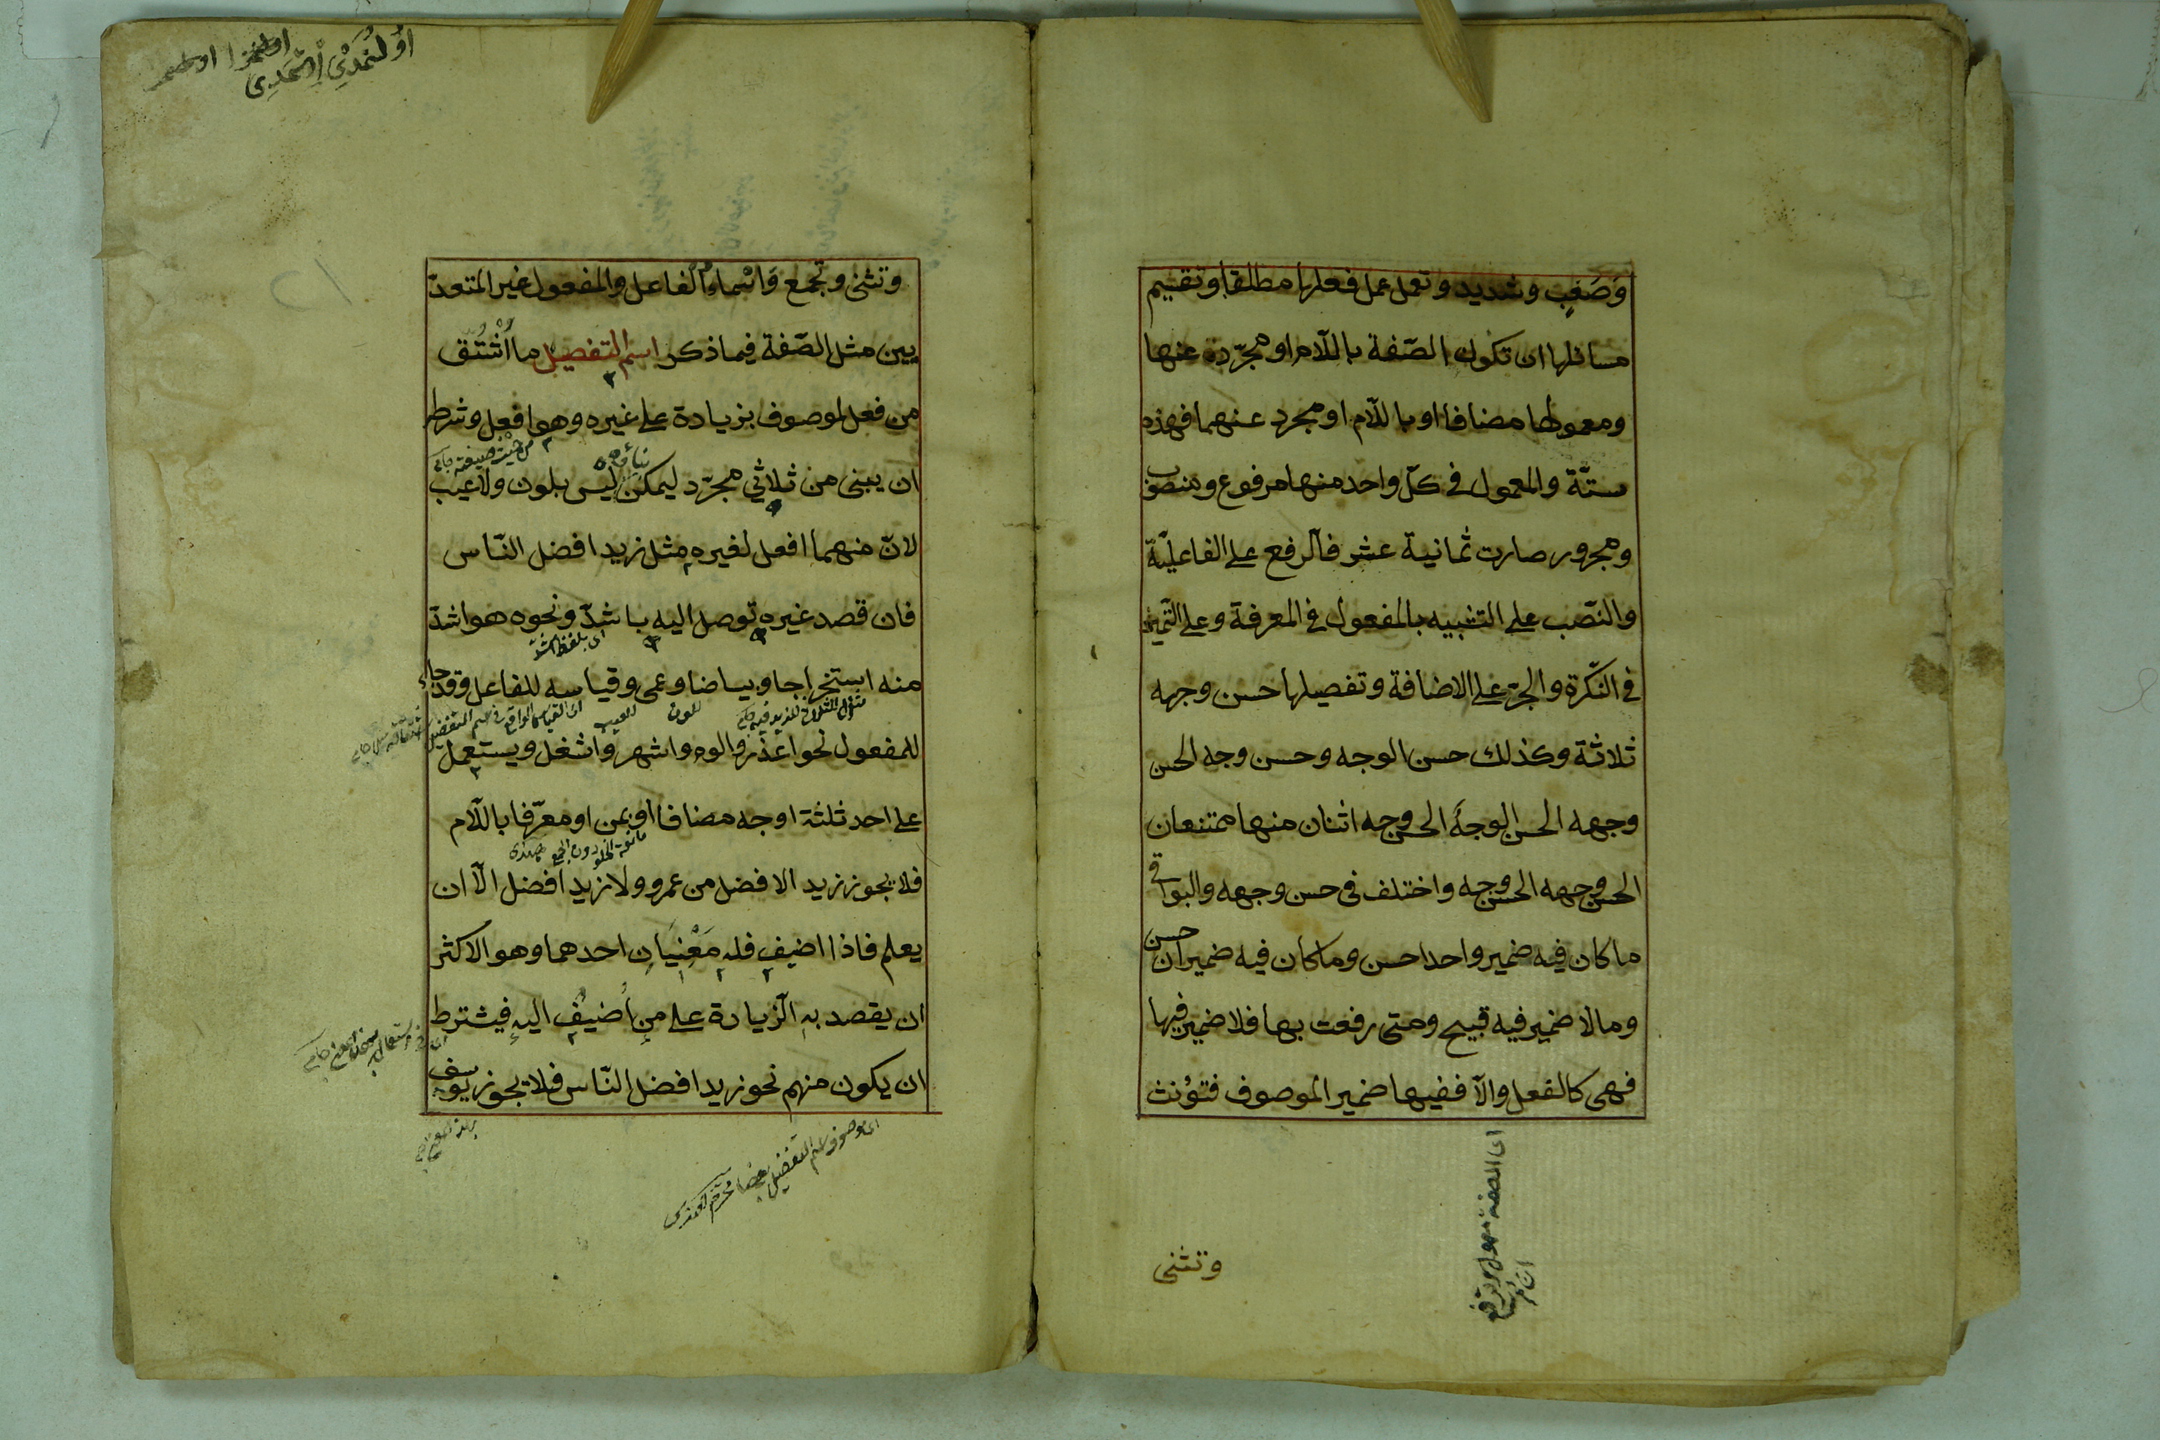 وَصَعْبٍ وشديد وتعمل عمل فعلها مطلقا وتقسيم
مسائلها ان تكون الصّفة باللّام او مجرّدة عنها
ومعمولها مضافا او باللّام او مجرد عنهما فهذه
ستّة والمعمول فى كلّ واحد منها مرفوع ومنصوب
ومجرور صارت ثمانية عشر فالرفع على الفاعليّة
والنّصب على التشبيه بالمفعول فى المعرفة وعلى التّميز
فى النّكرة والجرّ على الاضافة وتفصيلها حسن وجهه
ثلاثة وكذلك حسن الوجه وحسن وجه الحسن
وجهه الحسن الوجهُ الحسن وجه اثنان منها ممتنعان
الحسن وجهه الحسن وجه واختلف فى حسن وجهه والبواقى
ما كان فيه ضمير واحد احسن وما كان فيه ضميران حسن
وما لا ضمير فيه قبيح ومتى رفعت بها فلا ضمير فيها
فهى كالفعل والّا ففيها ضمير الموصوف فتؤنث
اى الصفة
وتثنى
وتثنى وتجمع وَاسْماء الْفاعل والمفعول غير المتعدّ
يين مثل الصّفة فيما ذكر اسم التفضيل ما اُشْتُقّ
من فعل لموصوف بزيادة على غيره وهو افعل وشرطه
من حيث صيغته جامى
ان يبنى من ثلاثي مجرّد ليمكن ليس بلون ولا عيب
لانّ منهما افعل لغيره مثل زيد افضل النّاس
فان قصد غيره توصل اليه باشدّ ونحوه هو اشدّ
اى بلفظ اشدّ
منه استخراجا وبياضا وعمى وقياسه للفاعل وقد جاء
للون
للعيب
للمفعول نحو اعذر والوم واشهر واشغل ويستعمل
على احد ثلثة اوجه مضافا او بمن او معرّفا باللّام
مانعة الخلو دون الجمع
فلا يجوز زيد الافضل من عمرو ولا زيد افضل الّا ان
يعلم فاذا اضيف فله مَعْنِيَان احدهما وهو الاكثر
ان يقصد به الزّيادة على من اُضيف اليه فيشترط
ان يكون منهم نحو زيد افضل النّاس فلا يجوز يوسف